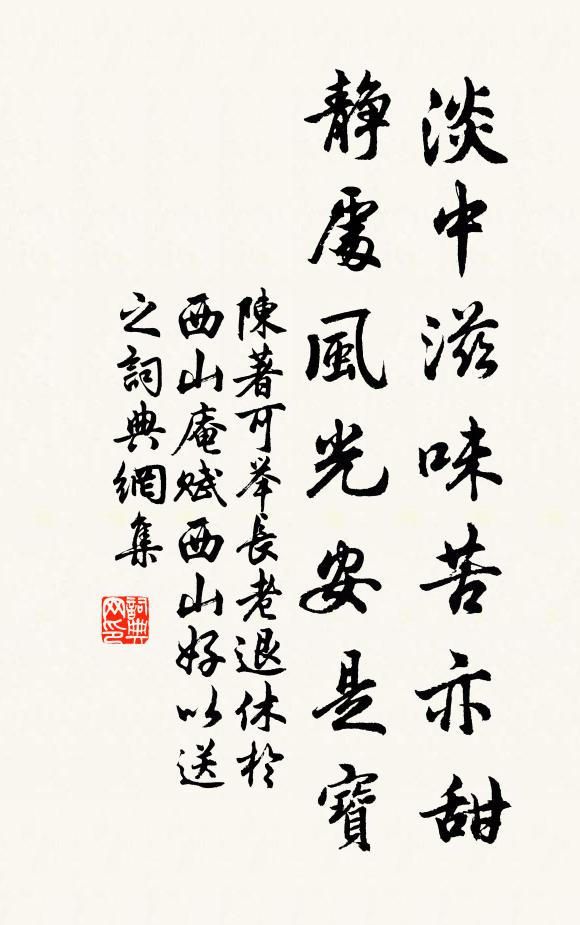 淡中滋味苦亦甜
靜處風光安是寶
陳著可举長老退休於
西山庵赋西山好以送
之詞典網集
詞典网印